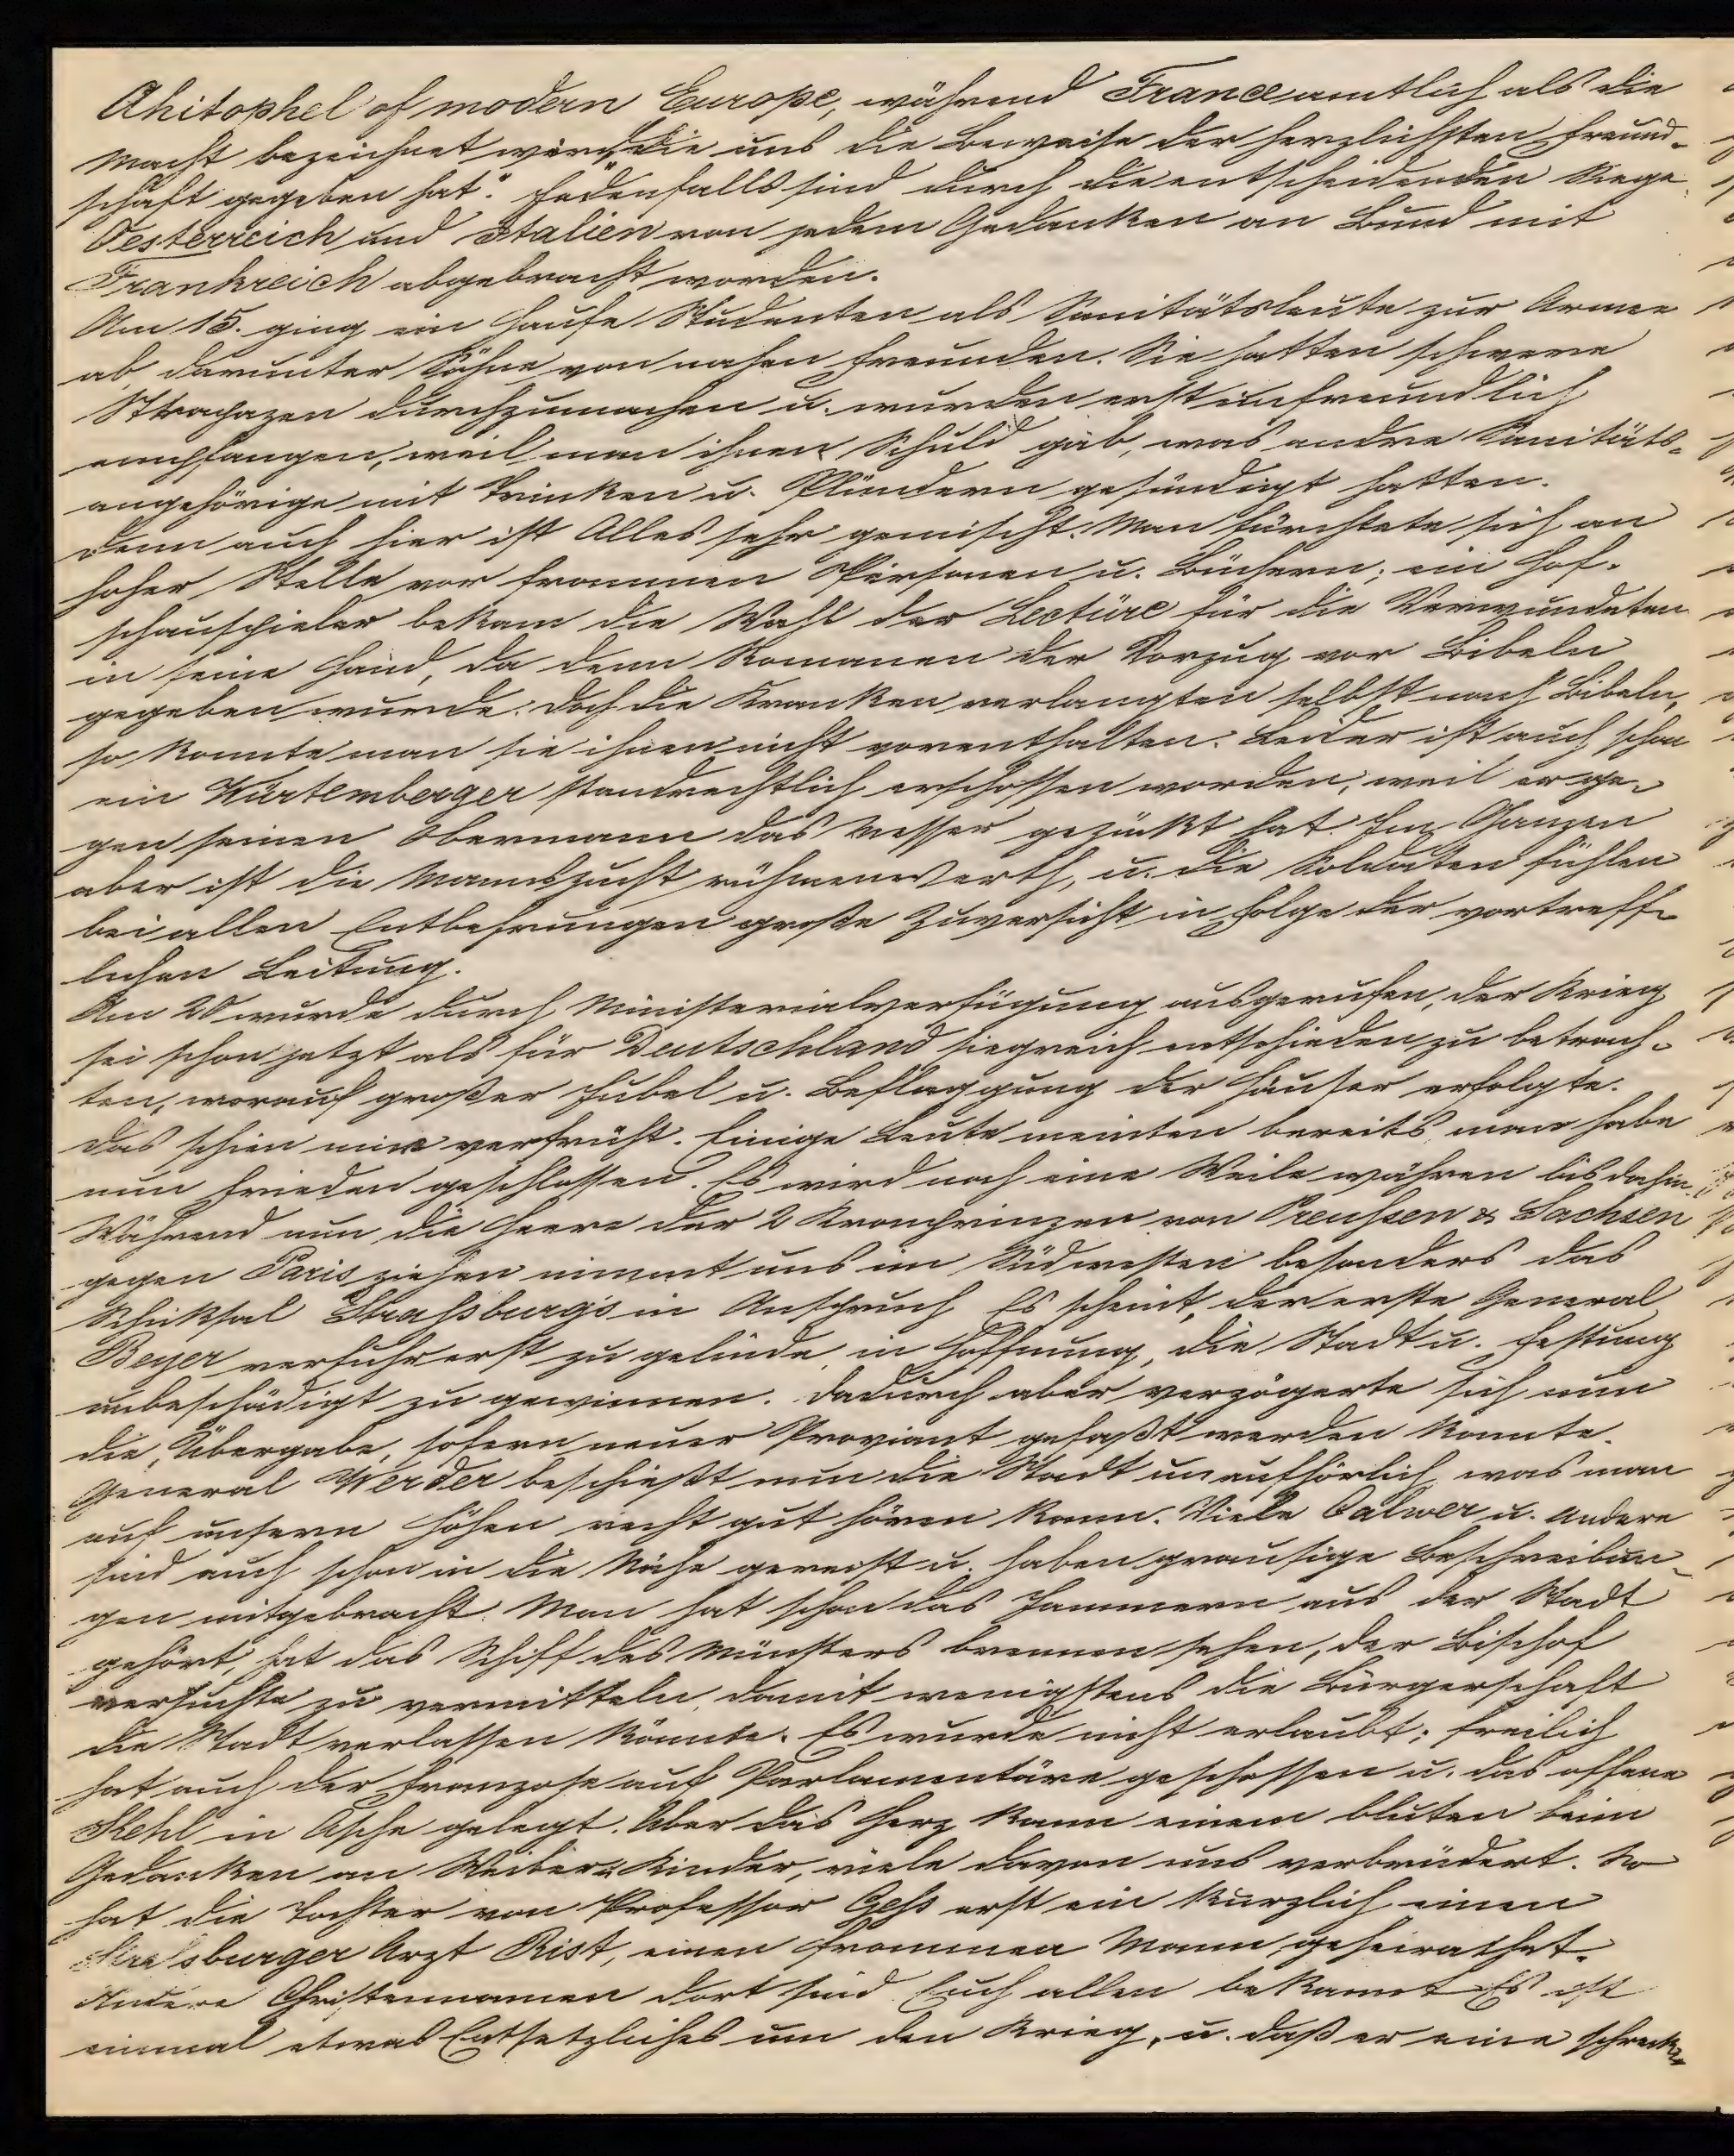 Ahitophel of modern Europe, während France amtlich als die
Macht bezeichnet wird, „die uns die Beweise der herzlichsten Freund-
schaft gegeben hat." Jedenfalls sind durch die entscheidenden Siege
Oesterreich und Italien von jedem Gedanken an Bund mit
Frankreich abgebracht worden.
Am 15. ging ein Haufe Studenten als Sanitätsleute zur Armee
ab, darunter Söhne von nahen Freunden. Sie hatten schwere
Strapazen durchzumachen u. wurden erst unfreundlich
empfangen, weil man ihnen Schuld gab, was andre Sanitäts-
angehörige mit Trinken u. Plündern gesündigt hatten.
Denn auch hier ist Alles sehr gemischt. Man fürchtete sich an
hoher Stelle vor frommen Personen u. Büchern; ein Hof-
schauspieler bekam die Wahl der Lectüre für die Verwundeten
in seine Hand, da denn Romanen der Vorzug vor Bibeln
gegeben wurde. Doch die Kranken verlangten selbst nach Bibeln,
so konnte man sie ihnen nicht vorenthalten. Leider ist auch schon
ein Würtemberger standrechtlich erschossen worden, weil er ge-
gen seinen Obermann das Messer gezückt hat. Im Ganzen
aber ist die Mannszucht rühmenswerth, u. die Soldaten fühlen
bei allen Entbehrungen große Zuversicht in Folge der vortreff-
lichen Leitung.
Am 20 wurde durch Ministerialverfügung ausgerufen, der Krieg
sei schon jetzt als für Deutschland siegreich entschieden zu betrach-
ten, worauf großer Jubel u. Beflaggung der Häuser erfolgte.
Das schien mir verfrüht. Einige Leute meinten bereits man habe
nun Frieden geschlossen. Es wird noch eine Weile währen bis dahin.
Während nun die Heere der 2 Kronprinzen von Preussen & Sachsen
gegen Paris ziehen nimmt uns im Südwesten besonders das
Schicksal Strassburg's in Anspruch. Es scheint, der erste General
Beyer verfuhr erst zu gelinde, in Hoffnung, die Stadt u. Festung
unbeschädigt zu gewinnen. Dadurch aber verzögerte sich nun
die Übergabe, sofern neuer Proviant gefaßt werden konnte.
General Werder beschießt nun die Stadt unaufhörlich, was man
auf unsern Höhen recht gut hören kann. Viele Calwer u. Andere
sind auch schon in die Nähe gereist u. haben grausige Beschreibun-
gen mitgebracht. Man hat schon das Jammern aus der Stadt
gehört, hat das Schiff des Münsters brennen sehen, der Bischof
versuchte zu vermitteln, damit wenigstens die Bürgerschaft
die Stadt verlassen könnte. Es wurde nicht erlaubt; freilich
hat auch der Franzose auf Parlamentäre geschossen u. das offene
Kehl in Asche gelegt. Aber das Herz kann einem bluten beim
Gedanken an Weiber u. Kinder, viele davon uns verbrüdert. So
hat die Tochter von Professor Gess erst ein kürzlich einen
Strassburger Arzt Rist, einen frommen Mann, geheirathet.
Andere Christennamen dort sind Euch allen bekannt. Es ist
einmal etwas Entsetzliches um den Krieg, u. daß er eine schreck-